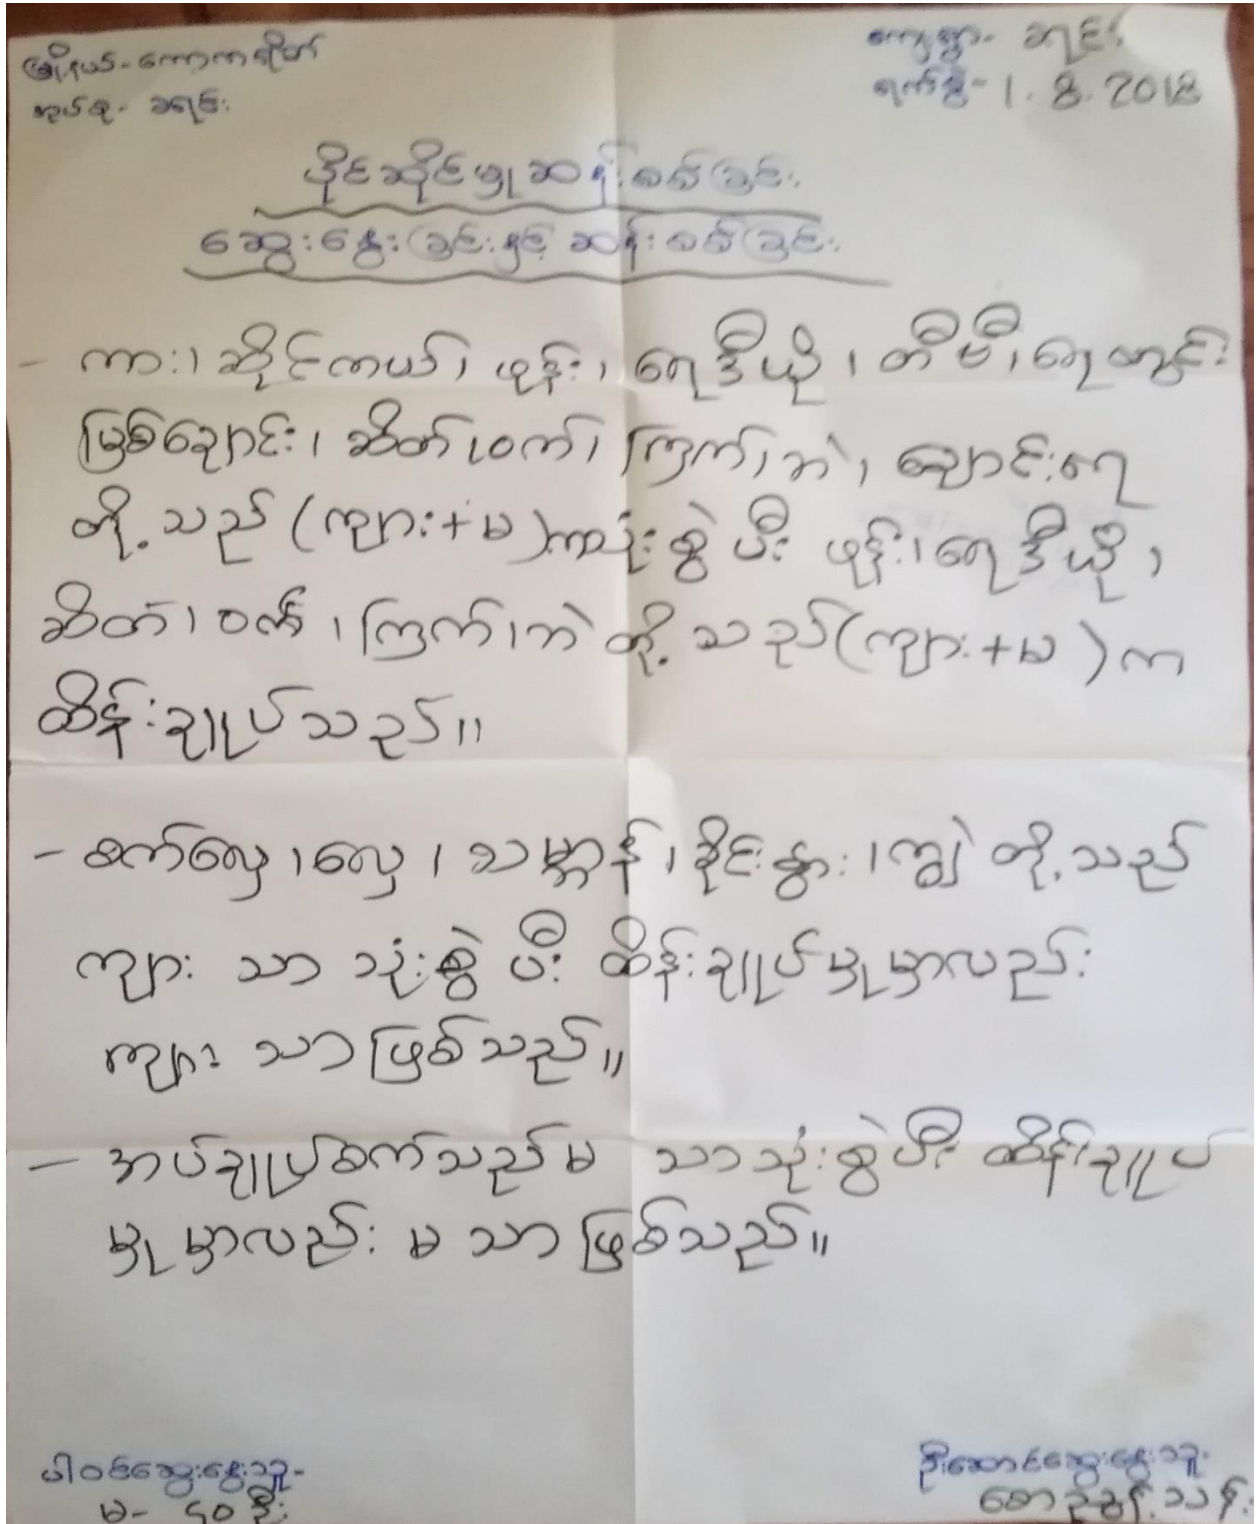 မြို့နယ်-ကော့ကရိတ်
ကျေးရွာ-
အုပ်စု-
ရက်စွဲ- 1.8.2018
ပိုင်ဆိုင်မှုဆန်းစစ်ခြင်း
ဆွေးနွေးခြင်းနှင့် ဆန်းစစ်ခြင်း
- ကား၊ ဆိုင်ကယ်၊ ဖုန်း၊ ရေဒီယို၊ တီဗီ၊ ရေတွင်း
မြစ်ချောင်း၊ ဆိတ်၊ ဝက်၊ ကြက်၊ ဘဲ၊ ချောင်းရေ
တို့သည် (ကျား+မ)ကသုံးစွဲပီး ဖုန်း၊ ရေဒီယို၊
ဆိတ်၊ ဝက်၊ ကြက်၊ ဘဲ တို့သည်(ကျား+မ)က
ထိန်းချုပ်သည်။
- စက်လှေ၊ လှေ၊ သမ္ဗာန်၊ ခိုင်းနွား၊ ကျွဲ တို့သည်
ကျား သာ သုံးစွဲပီး ထိန်းချုပ်မှုမှာလည်း
ကျား သာဖြစ်သည်။
- အပ်ချုပ်စက်သည်မ သာသုံးစွဲပီး ထိန်းချုပ်
မှုမှာလည်း မ သာဖြစ်သည်။
ပါဝင်ဆွေးနွေးသူ-
ဦးဆောင်ဆွေးနွေးသူ-
မ- ၄၀ ဦး